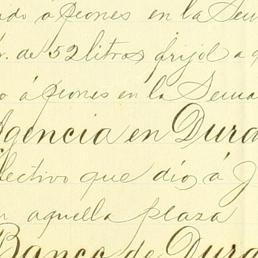 ado á peones en la Sem
r. de 52 litros frijol a
o á peones en la Sema
Agencia en Dura
efectivo que dió á J
n aquella plaza
Banco de Dura